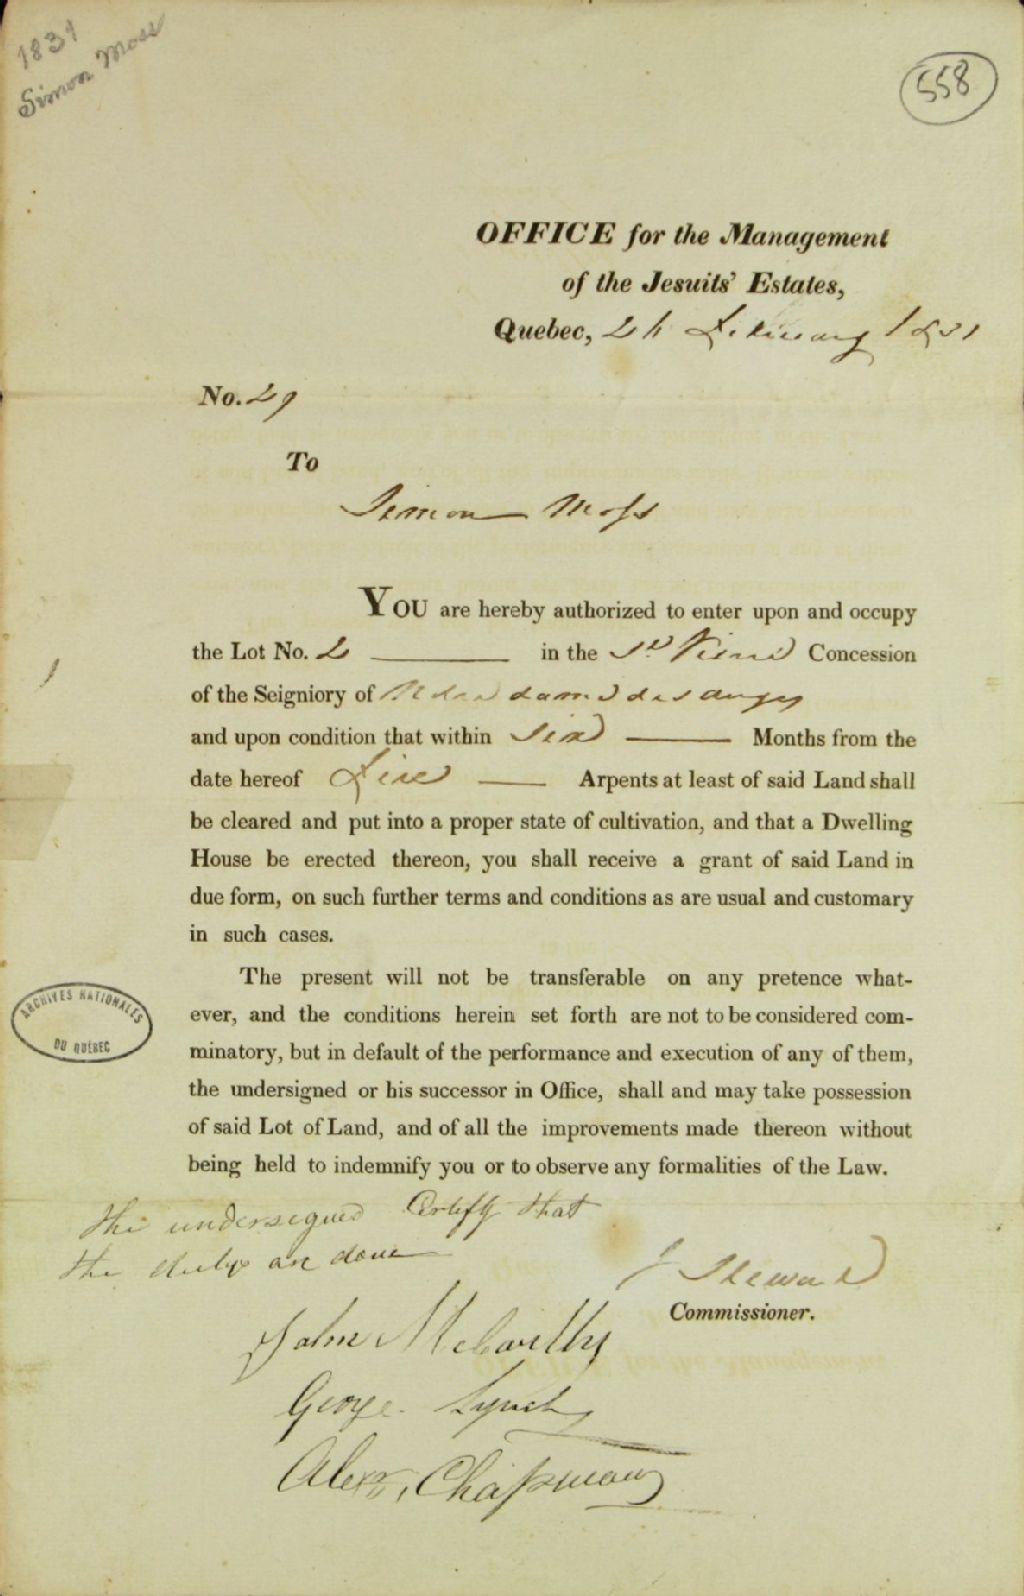 1831
Simon Moss
558
OFFICE for the Management
of the Jesuits' Estates,
Quebec, 24 February 1831
No. 29
To
Simon Moss
YOU are hereby authorized to enter upon and occupy
the Lot No. 2 in the Concession
of the Seigniory of dame des anges
and upon condition that within Six Months from the
date hereof Five Arpents at least of said Land shall
be cleared and put into a proper state of cultivation, and that a Dwelling
House be erected thereon, you shall receive a grant of said Land in
due form, on such further terms and conditions as are usual and customary
in such cases.
The present will not be transferable on any pretence what-
ever, and the conditions herein set forth are not to be considered com-
minatory, but in default of the performance and execution of any of them,
the undersigned or his successor in Office, shall and may take possession
of said Lot of Land, and of all the improvements made thereon without
being held to indemnify you or to observe any formalities of the Law.
ARCHIVES NATIONALES
DU QUÉBEC
the undersigned Certify that
the are done
J Stewart
Commissioner.
John McCarthy
George Lynch
Alexr. Chapman